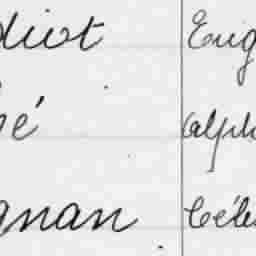 diot Eug
é Alph
gnan Céles